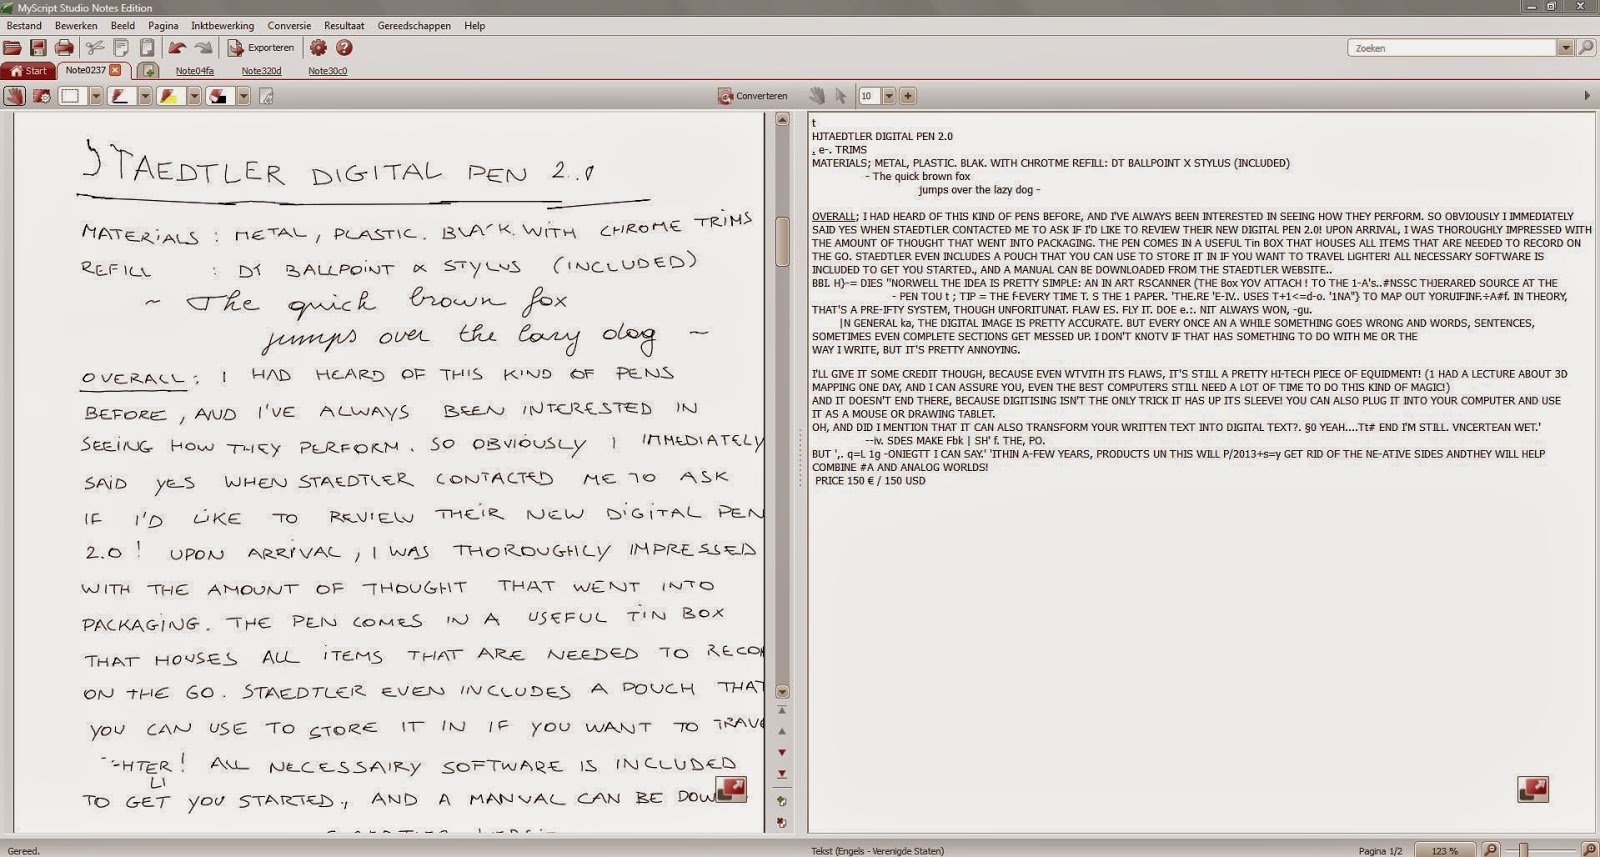 MyScript Studio Notes Edition
Bestand Bewerken Beeld Pagina Inktbewerking Conversie Resultaat Gereedschappen Help
Exporteren
Zoeken
Start Note0237 Note04fa Note320d Note30c0
Converteren
10
STAEDTLER DIGITAL PEN 2.0
MATERIALS : METAL, PLASTIC. BLACK WITH CHROME TRIMS
REFILL : D1 BALLPOINT & STYLUS (INCLUDED)
~ The quick brown fox
jumps over the lazy dog ~
OVERALL : I HAD HEARD OF THIS KIND OF PENS
BEFORE, AND I'VE ALWAYS BEEN INTERESTED IN
SEEING HOW THEY PERFORM. SO OBVIOUSLY I IMMEDIATELY
SAID YES WHEN STAEDTLER CONTACTED ME TO ASK
IF I'D LIKE TO REVIEW THEIR NEW DIGITAL PEN
2.0! UPON ARRIVAL, I WAS THOROUGHLY IMPRESSED
WITH THE AMOUNT OF THOUGHT THAT WENT INTO
PACKAGING. THE PEN COMES IN A USEFUL TIN BOX
THAT HOUSES ALL ITEMS THAT ARE NEEDED TO RECOR
ON THE GO. STAEDTLER EVEN INCLUDES A POUCH THAT
YOU CAN USE TO STORE IT IN IF YOU WANT TO TRAVE
HTER! ALL NECESSAIRY SOFTWARE IS INCLUDED
LI
TO GET YOU STARTED., AND A MANUAL CAN BE DOW
t
HJTAEDTLER DIGITAL PEN 2.0
. e-. TRIMS
MATERIALS; METAL, PLASTIC. BLAK. WITH CHROTME REFILL: DT BALLPOINT X STYLUS (INCLUDED)
- The quick brown fox
jumps over the lazy dog -
OVERALL; I HAD HEARD OF THIS KIND OF PENS BEFORE, AND I'VE ALWAYS BEEN INTERESTED IN SEEING HOW THEY PERFORM. SO OBVIOUSLY I IMMEDIATELY
SAID YES WHEN STAEDTLER CONTACTED ME TO ASK IF I'D LIKE TO REVIEW THEIR NEW DIGITAL PEN 2.0! UPON ARRIVAL, I WAS THOROUGHLY IMPRESSED WITH
THE AMOUNT OF THOUGHT THAT WENT INTO PACKAGING. THE PEN COMES IN A USEFUL Tin BOX THAT HOUSES ALL ITEMS THAT ARE NEEDED TO RECORD ON
THE GO. STAEDTLER EVEN INCLUDES A POUCH THAT YOU CAN USE TO STORE IT IN IF YOU WANT TO TRAVEL LiGHTER! ALL NECESSARY SOFTWARE IS
INCLUDED TO GET YOU STARTED., AND A MANUAL CAN BE DOWNLOADED FROM THE STAEDTLER WEBSITE..
BBI. H}-= DIES "NORWELL THE IDEA IS PRETTY SIMPLE: AN IN ART RSCANNER (THE Box YOV ATTACH ! TO THE 1-A's..#NSSC THJERARED SOURCE AT THE
- PEN TOU t ; TIP = THE f-EVERY TIME T. S THE 1 PAPER. 'THE.RE 'E-IV.. USES T+1<=d-o. '1NA"} TO MAP OUT YORUIFINF.÷A#f. IN THEORY,
THAT'S A PRE-IFTY SYSTEM, THOUGH UNFORTUNAT. FLAW ES. FLY IT. DOE e.:. NIT ALWAYS WON, -gu.
|N GENERAL ka, THE DIGITAL IMAGE IS PRETTY ACCURATE. BUT EVERY ONCE AN A WHILE SOMETHING GOES WRONG AND WORDS, SENTENCES,
SOMETIMES EVEN COMPLETE SECTIONS GET MESSED UP. I DON'T KNOTV IF THAT HAS SOMETHING TO DO WITH ME OR THE
WAY I WRITE, BUT IT'S PRETTY ANNOYING.
I'LL GIVE IT SOME CREDIT THOUGH, BECAUSE EVEN WTVITH ITS FLAWS, IT'S STILL A PRETTY HI-TECH PIECE OF EQUIDMENT! (1 HAD A LECTURE ABOUT 3D
MAPPING ONE DAY, AND I CAN ASSURE YOU, EVEN THE BEST COMPUTERS STILL NEED A LOT OF TIME TO DO THIS KIND OF MAGIC!)
AND IT DOESN'T END THERE, BECAUSE DIGITISING ISN'T THE ONLY TRICK IT HAS UP ITS SLEEVE! YOU CAN ALSO PLUG IT INTO YOUR COMPUTER AND USE
IT AS A MOUSE OR DRAWING TABLET.
OH, AND DID I MENTION THAT IT CAN ALSO TRANSFORM YOUR WRITTEN TEXT INTO DIGITAL TEXT?. §0 YEAH....Tt# END I'M STILL. VNCERTEAN WET.'
--iv. SDES MAKE Fbk | SH' f. THE, PO.
BUT ',. q=L 1g -ONIEGTT I CAN SAY.' 'ITHIN A-FEW YEARS, PRODUCTS UN THIS WILL P/2013+s=y GET RID OF THE NE-ATIVE SIDES ANDTHEY WILL HELP
COMBINE #A AND ANALOG WORLDS!
PRICE 150 € / 150 USD
Gereed. Tekst (Engels - Verenigde Staten) Pagina 1/2 123 %